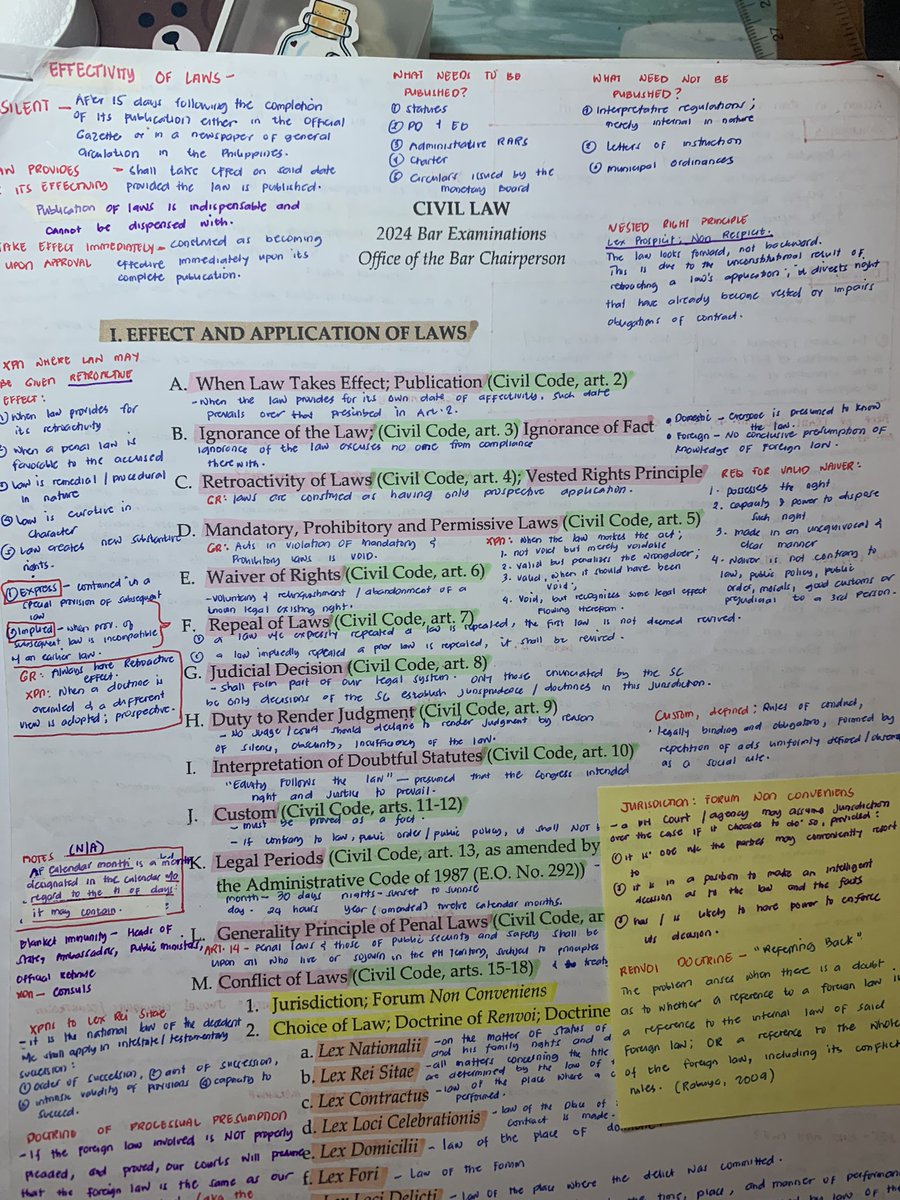 EFFECTIVITY OF LAWS -
SILENT - AFTER 15 days following the completion
of its publication either in the Official
Gazette or in a newspaper of general
circulation in the Philippines.
PROVIDES - shall take effect on said date
ITS EFFECTIVITY provided the law is published.
Publication of laws is indispensable and
cannot be dispensed with.
TAKE EFFECT IMMEDIATELY - construed as becoming
UPON APPROVAL effective immediately upon its
complete publication.
WHAT NEEDS TO BE
PUBLISHED?
① Statutes
② PD & EO
③ Administrative R&Rs
④ Charter
⑤ Circulars issued by the
monetary board
WHAT NEED NOT BE
PUBLISHED?
① Interpretative regulations;
merely internal in nature
② Letters of instruction
③ municipal ordinances
CIVIL LAW
2024 Bar Examinations
Office of the Bar Chairperson
VESTED RIGHT PRINCIPLE
Lex Prospicit; Non Respicit.
The law looks forward, not backward.
This is due to the unconstitutional result of
retroacting a law's application; it divests right
that have already become vested or impairs
obligations of contract.
I. EFFECT AND APPLICATION OF LAWS
XPN WHERE LAW MAY
BE GIVEN RETROACTIVE
EFFECT:
① When law provides for
its retroactivity
when a penal law is
favorable to the accused
③ Law is remedial / procedural
in nature
④ Law is curative in
character
⑤ Law creates new substantive
rights.
A. When Law Takes Effect; Publication (Civil Code, art. 2)
- When the law provides for its own date of effectivity, such date
prevails over that prescribed in Art. 2.
B. Ignorance of the Law; (Civil Code, art. 3) Ignorance of Fact
Ignorance of the law excuses no one from compliance
therewith.
• Domestic - everyone is presumed to know
the law.
• Foreign - No conclusive presumption of
knowledge of foreign law.
C. Retroactivity of Laws (Civil Code, art. 4); Vested Rights Principle
GR: laws are construed as having only prospective application.
REQ FOR VALID WAIVER:
1. possesses the right
2. capacity & power to dispose
such right
3. made in an unequivocal &
clear manner
4. Waiver is not contrary to
law, public policy, public
order, morals, good customs or
prejudicial to a 3rd person.
D. Mandatory, Prohibitory and Permissive Laws (Civil Code, art. 5)
GR: Acts in violation of mandatory &
Prohibitory laws is VOID.
XPN: When the law makes the act;
1. not void but merely voidable
2. valid but penalizes the wrongdoer;
3. Valid, when it should have been
void;
4. Void, but recognizes some legal effect
flowing therefrom.
E. Waiver of Rights (Civil Code, art. 6)
- voluntary & relinquishment / abandonment of a
known legal existing right.
① Express - contained in a
special provision of subsequent
law
② Implied - when prov. of
subsequent law is incompatible
w/ an earlier law.
F. Repeal of Laws (Civil Code, art. 7)
① a law w/c expressly repealed a law is repealed, the first law is not deemed revived.
② a law impliedly repealed a prior law is repealed, it shall be revived.
GR: Always have Retroactive
effect.
XPN: When a doctrine is
overruled & a different
view is adopted; prospective.
G. Judicial Decision (Civil Code, art. 8)
- Shall form part of our legal system. Only those enunciated by the SC
be only decisions of the SC establish jurisprudence / doctrines in this jurisdiction.
H. Duty to Render Judgment (Civil Code, art. 9)
- No Judge / court should decline to render judgment by reason
of silence, obscurity, insufficiency of the law.
Custom, defined: Rules of conduct,
legally binding and obligatory, formed by
repetition of acts uniformly defined /
as a social rule.
I. Interpretation of Doubtful Statutes (Civil Code, art. 10)
"Equity follows the law" - presumed that the Congress intended
right and justice to prevail.
J. Custom (Civil Code, arts. 11-12)
- must be proved as a fact.
- if contrary to law, public order / public policy, it shall NOT
NOTES (N/A)
A calendar month is a month
designated in the calendar w/o
regard to the # of days
it may contain.
K. Legal Periods (Civil Code, art. 13, as amended by
the Administrative Code of 1987 (E.O. No. 292))
month - 30 days nights - sunset to sunrise
day - 24 hours year (amended) twelve calendar months.
L. Generality Principle of Penal Laws (Civil Code, ar
ART. 14 - Penal laws & those of public security and safety shall be
upon all who live or sojourn in the PH territory, subject to principles
& to treaty
Blanket Immunity - Heads of
State, Ambassadors, Public ministers,
Official Retinue
XPN - Consuls
M. Conflict of Laws (Civil Code, arts. 15-18)
1. Jurisdiction; Forum Non Conveniens
2. Choice of Law; Doctrine of Renvoi; Doctrine
a. Lex Nationalii - on the matter of status of
and his family rights and d
b. Lex Rei Sitae - all matters concerning the title
are determined by the law of
c. Lex Contractus - law of the place where a c
performed.
d. Lex Loci Celebrationis - law of the place of
contract is made.
e. Lex Domicilii - law of the place of
f. Lex Fori - Law of the Forum
Lex Loci Delicti - law of the place where the delict was committed.
time, place, and manner of performance
XPNs to Lex Rei Sitae
- it is the national law of the decedent
w/c shall apply in intestate / testamentary
succession:
① order of succession, ② amt of succession,
③ intrinsic validity of provisions ④ capacity to
succeed.
DOCTRINE OF PROCESSUAL PRESUMPTION
- If the foreign law involved is NOT properly
pleaded, and proved, our courts will presume
that the foreign law is the same as our
JURISDICTION: FORUM NON CONVENIENS
- a PH Court / agency may assume jurisdiction
over the case if it chooses to do so, provided:
① it is one w/c the parties may conveniently resort
to
② it is in a position to make an intelligent
decision as to the law and the facts
③ has / is likely to have power to enforce
its decision.
RENVOI DOCTRINE - "Referring Back"
The problem arises when there is a doubt
as to whether a reference to a foreign law is
a reference to the internal law of said
foreign law; OR a reference to the whole
of the foreign law, including its conflict
rules. (Rabuya, 2009)